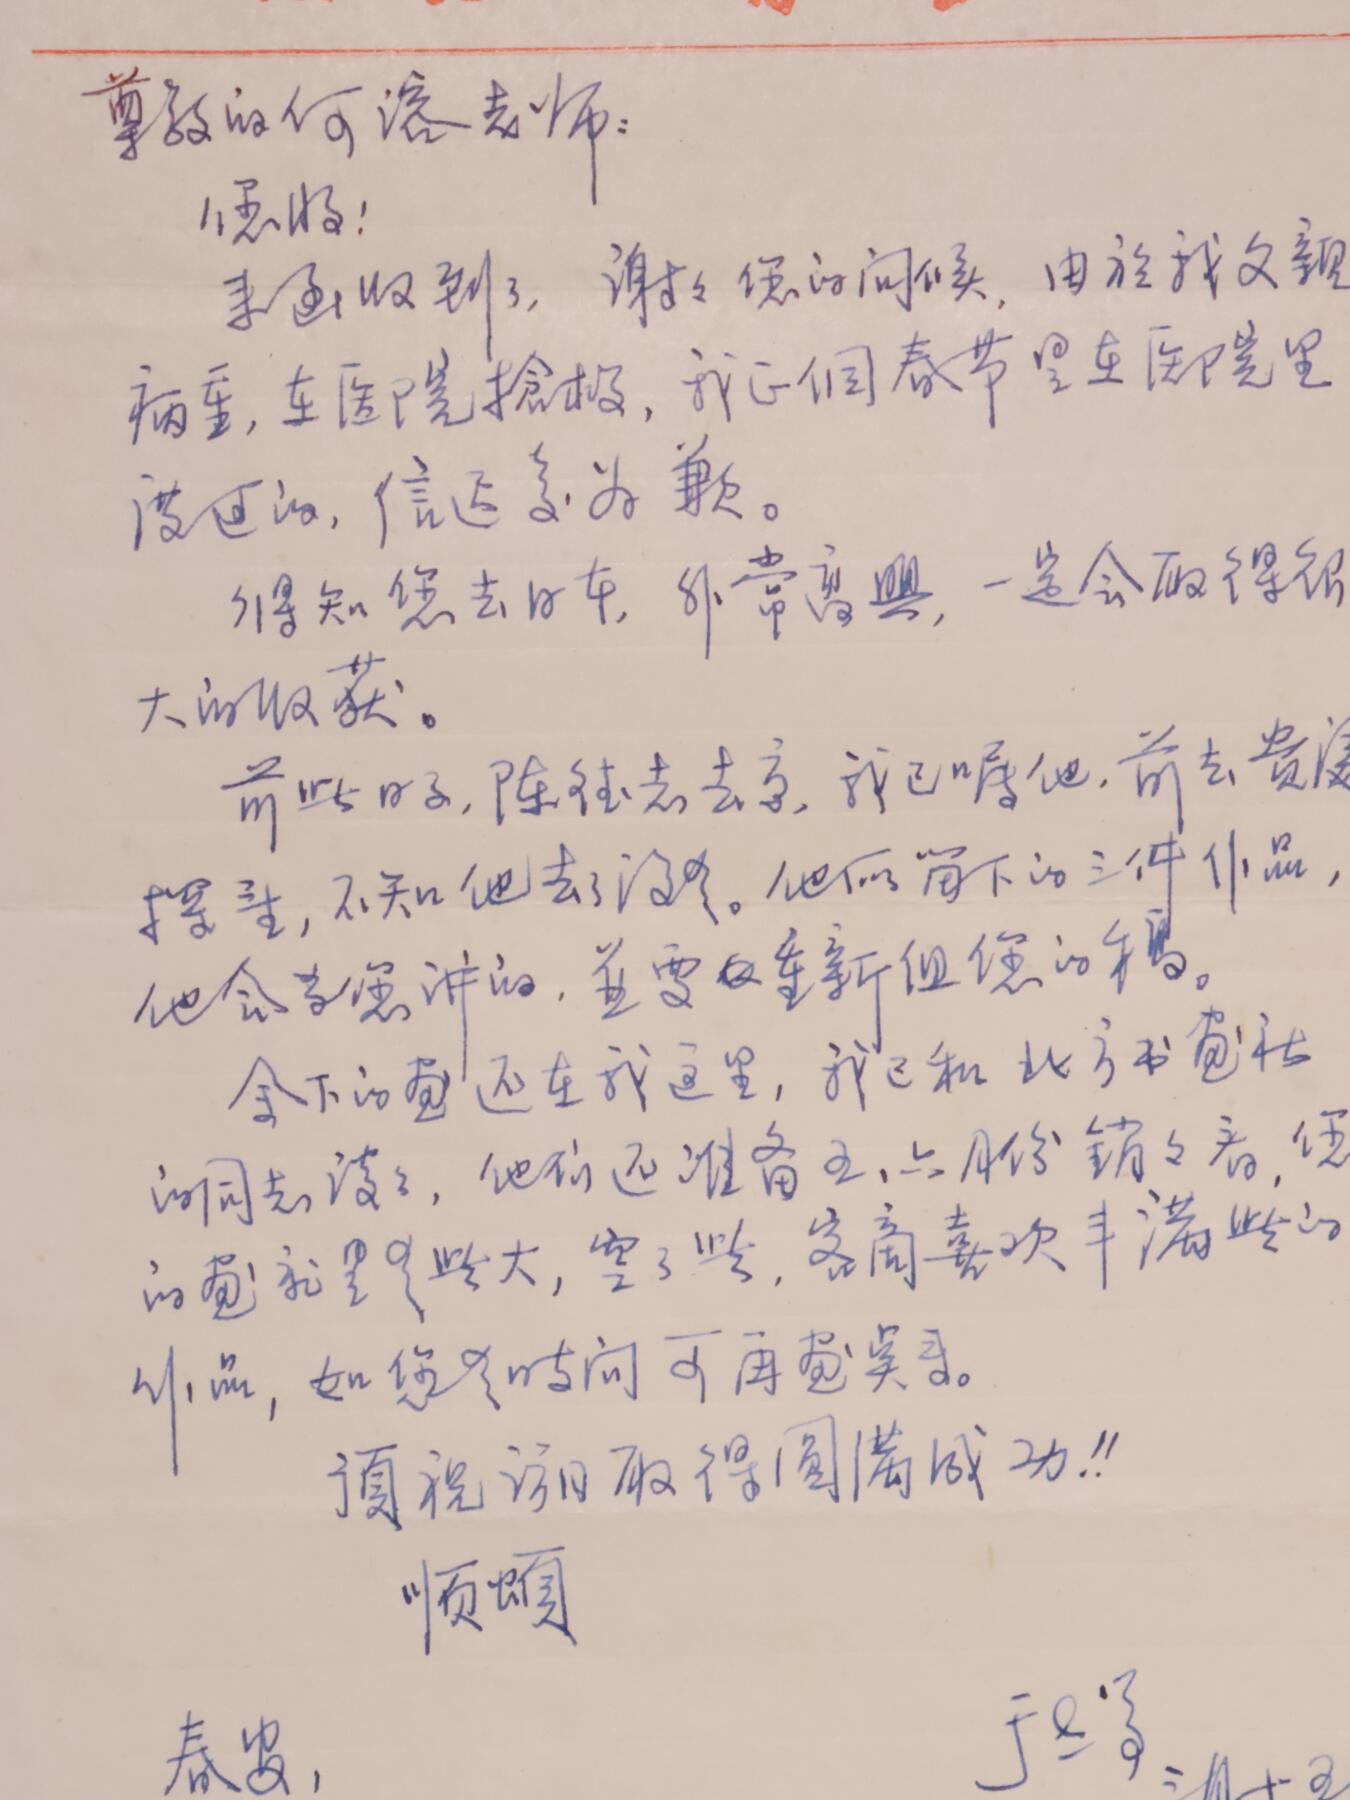 尊敬的何溶老师：
您好！
来函收到了，谢谢您的问候，由於我父親
病重，在医院搶救，我正個春节是在医院里
渡过的，信迟复为歉。
得知您去日本，非常高興，一定会取得很
大的收获。
前些日子，陈继志去京，我已嘱他，前去贵
探望，不知他去了没有。他们留下的三件作品，
他会당您讲的，並要重新组您的稿。
余下的画还在我这里，我已和北方书画社
的同志谈了，他们还准备五、六月份销销看，您
的画就是有些大，空了些，客商喜欢丰满些的
作品，如您有時间可再画寄来。
預祝访日取得圆满成功！！
顺颂
春安，
三月十五